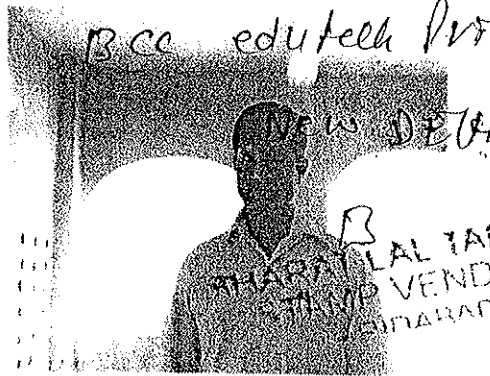 BCC edutech Pvt
NEW DELH
BHARAT LAL YA
STAMP VEND